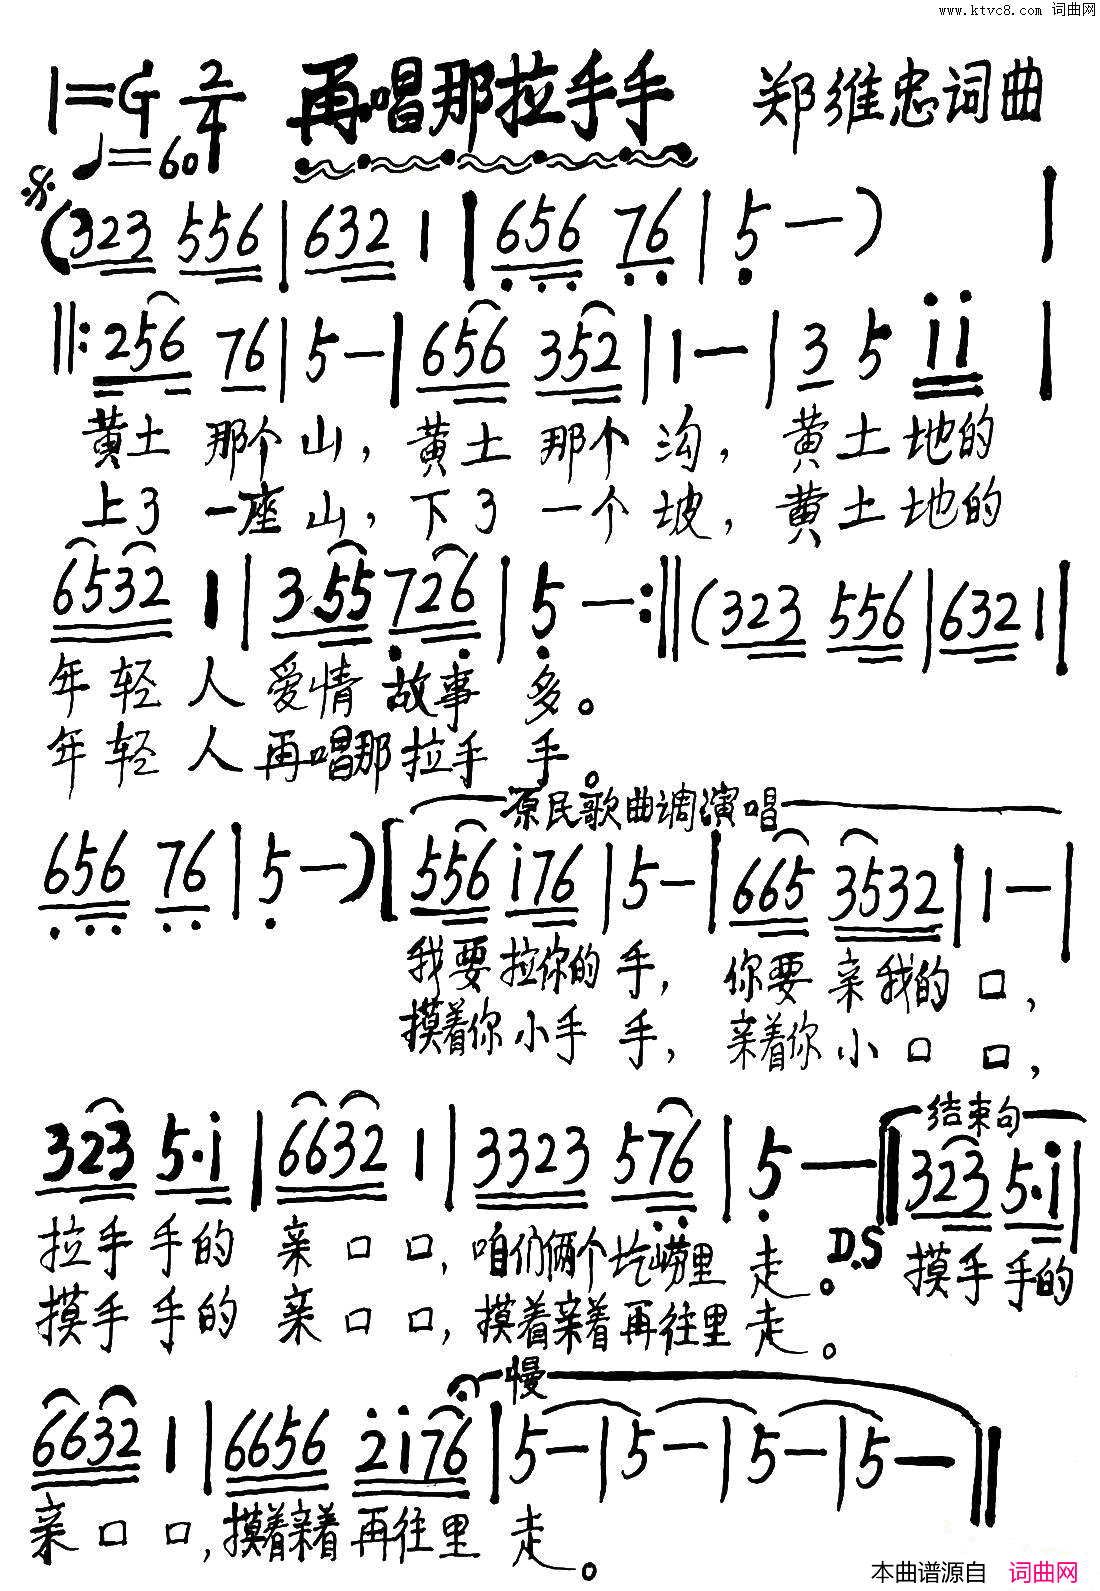 www.ktvc8.com 词曲网
1=G 2/4 再唱那拉手手 郑维忠词曲
♩=60
(323 556 | 632 1 | 656 76 | 5 — ) |
||: 256 76 | 5 — | 656 352 | 1 — | 3 5 ii |
黄土 那个山，黄土 那个 沟，黄土地的
上了 一座山，下了 一个 坡，黄土地的
6532 1 | 3·55 726 | 5 — :|| (323 556 | 632 1 |
年轻人 爱情 故事 多。
年轻人 再唱那拉手 手。
原民歌曲调演唱
656 76 | 5 — ) [ 556 i76 | 5 — | 665 3532 | 1 — |
我要拉你的 手，你要 亲我的 口，
摸着你小手 手，亲着你小口 口，
结束句
323 5·i | 6632 1 | 3323 576 | 5 — || 323 5·i |
拉手 手的 亲口口，咱们俩个圪崂里 走。 D.S 摸手 手的
摸手 手的 亲口口，摸着亲着再往里 走。
慢
6632 1 | 6656 2i76 | 5 — | 5 — | 5 — | 5 — ||
亲口口，摸着亲着 再往里 走。
本曲谱源自 词曲网